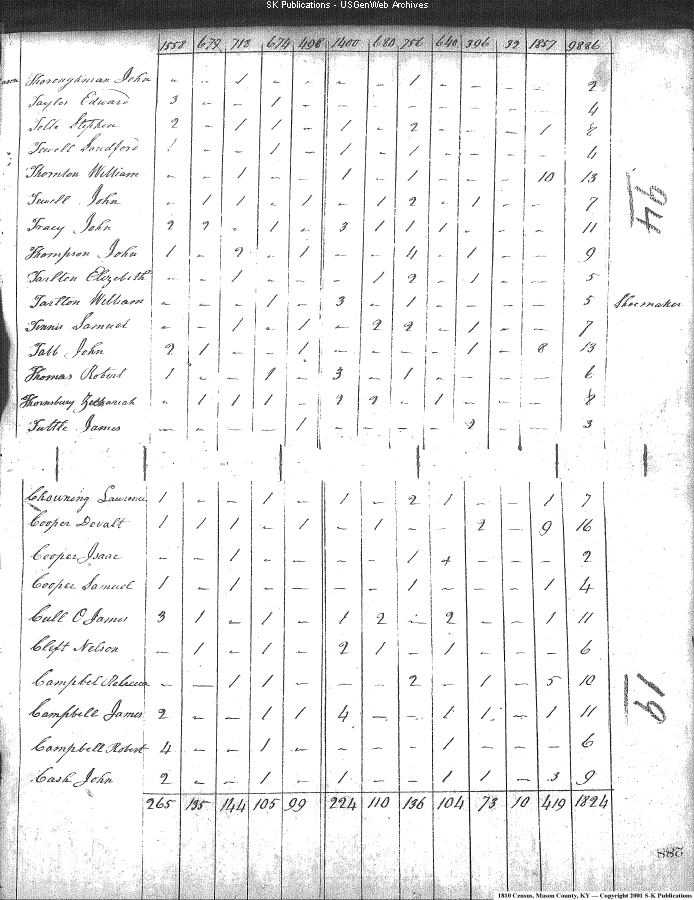 SK Publications - USGenWeb Archives
1558 679 718 674 498 1400 680 756 640 396 39 1857 9886
Thoroughman John – – 1 – – – – 1 – – – – 2
Taylor Edward 3 – – 1 – – – – – – – – 4
Stephen 2 – 1 1 – 1 – 2 – – – 1 8
Tewell Sandford 1 – – 1 – 1 – 1 – – – – 4
Thornton William – – 1 – – 1 – 1 – – – 10 13
Tewell John – 1 1 – 1 – 1 2 – 1 – – 7
94
Tracy John 2 2 – 1 – 3 1 1 1 – – – 11
Thompson John 1 – 2 – 1 – – 4 – 1 – – 9
Tarlton Elizebeth – – 1 – – – 1 2 – 1 – – 5
Tarlton William – – – 1 – 3 – 1 – – – – 5 Shoemaker
Tennis Samuel – – 1 – 1 – 2 2 – 1 – – 7
Tabb John 2 1 – – 1 – – – – 1 – 8 13
Thomas Robert 1 – – 1 – 3 – 1 – – – – 6
Thornsbury Zechariah – 1 1 1 – 2 2 – 1 – – – 8
Tuttle James – – – – 1 – – – – 2 – – 3
Chowning Lawrence 1 – – 1 – 1 – 2 1 – – 1 7
Cooper Devalt 1 1 1 – 1 – 1 – – 2 – 9 16
Cooper Isaac – – 1 – – – – 1 + – – – 2
Cooper Samuel 1 – 1 – – – – 1 – – – 1 4
Cull O James 3 1 – 1 – 1 2 – 2 – – 1 11
Clift Nelson – 1 – 1 – 2 1 – 1 – – – 6
Campbel Rebecca – – 1 1 – – – 2 – 1 – 5 10
19
Campbell James 2 – – 1 1 4 – – 1 1 – 1 11
Campbell Robert 4 – – 1 – – – – 1 – – – 6
Cash John 2 – – 1 – 1 – – 1 1 – 3 9
265 135 144 105 99 224 110 136 104 73 10 419 1824
288
1810 Census, Mason County, KY — Copyright 2001 S-K Publications